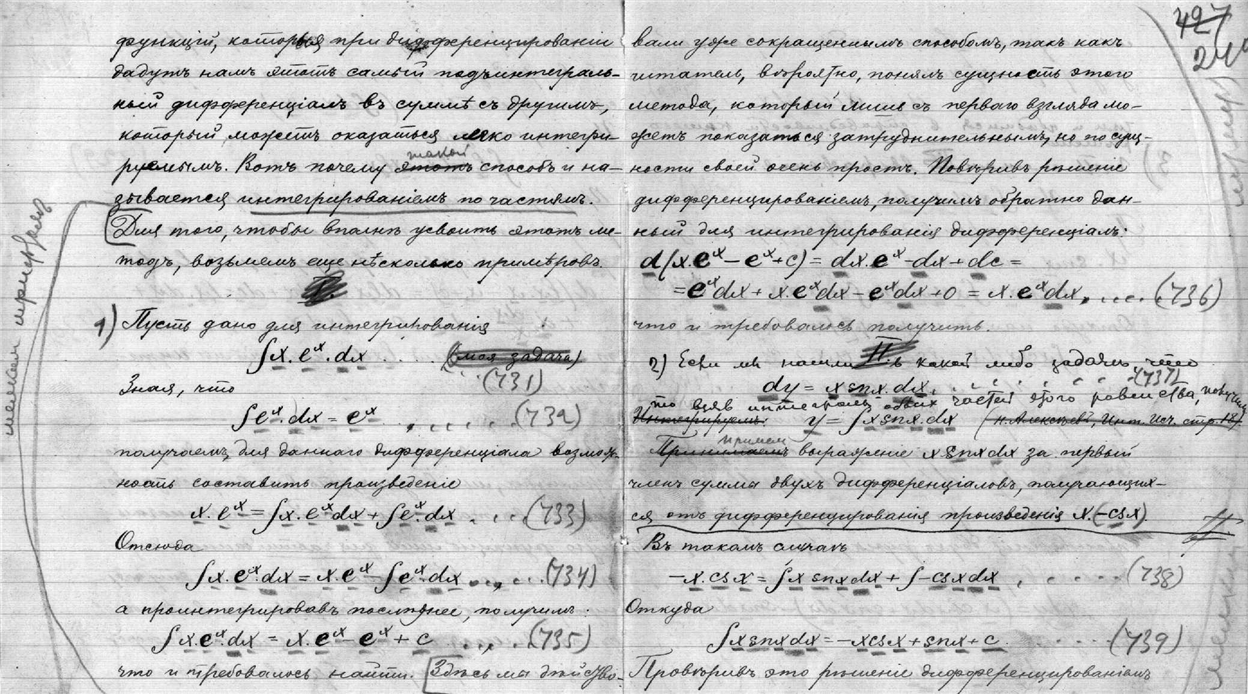 функцій, которыя при дифференцированіи
дадутъ намъ этотъ самый подъинтеграль-
ный дифференціалъ въ суммѣ съ другимъ,
который можетъ оказаться легко интегри-
руемымъ. Вотъ почему такой этотъ способъ и на-
зывается интегрированіемъ по частямъ.
Для того, чтобы вполнѣ усвоить этотъ ме-
тодъ, возьмемъ еще нѣсколько примѣровъ.
I.
1) Пусть дано для интегрированія
∫x.eˣ.dx . . . . (моя задача)
. . . (731)
Зная, что
∫eˣ.dx = eˣ . . . . . (732)
получаемъ для даннаго дифференціала возмож-
ность составить произведеніе
x.eˣ = ∫x.eˣdx + ∫eˣ.dx . . . (733)
Отсюда
∫x.eˣ.dx = x.eˣ − ∫eˣ.dx . . . . (734)
а проинтегрировавъ послѣднее, получимъ:
∫x.eˣ.dx = x.eˣ − eˣ + c . . . . (735)
что и требовалось найти. Здѣсь мы дѣйство-
мелкимъ шрифтомъ
427
вали уже сокращеннымъ способомъ, такъ какъ
читатель, вѣроятно, понялъ сущность этого
метода, который лишь съ перваго взгляда мо-
жетъ показаться затруднительнымъ, но по сущ-
ности своей очень простъ. Повѣривъ рѣшеніе
дифференцированіемъ, получимъ обратно дан-
ный для интегрированія дифференціалъ:
d(x.eˣ − eˣ + c) = dx.eˣ − dx + dc =
= eˣdx + x.eˣdx − eˣdx + 0 = x.eˣdx, . . . . (736)
что и требовалось получить.
II
2) Если мы нашли въ какой либо задачѣ, что
dy = x snx.dx, . . . . . . (737)
то взявъ интегралы обѣихъ частей этого равенства, получимъ
Интегрируемъ: y = ∫x snx.dx (н. Алексѣевъ, Инт. Исч. стр.
Принимаемъ примемъ выраженіе x snxdx за первый
членъ суммы двухъ дифференціаловъ, получающих-
ся отъ дифференцированія произведенія x.(−csx)
Въ такомъ случаѣ
−x.csx = ∫x snxdx + ∫−csxdx . . . . (738)
Откуда
∫x snxdx = −xcsx + snx + c . . . . . (739)
Провѣривъ это рѣшеніе дифференцированіемъ